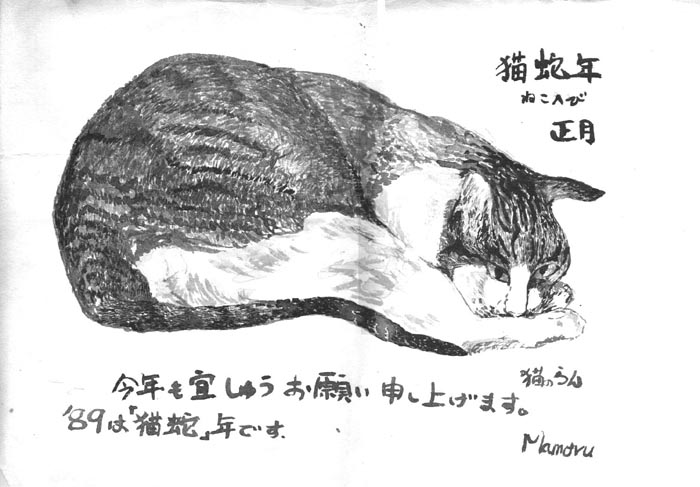 猫蛇年
ねこへび
正月
今年も宜しゅうお願い申し上げます。
'89は「猫蛇」年です.
猫のらん
Mamoru